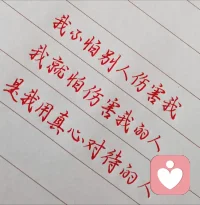 我不怕别人伤害我
我就怕伤害我的人
是我用真心对待的人